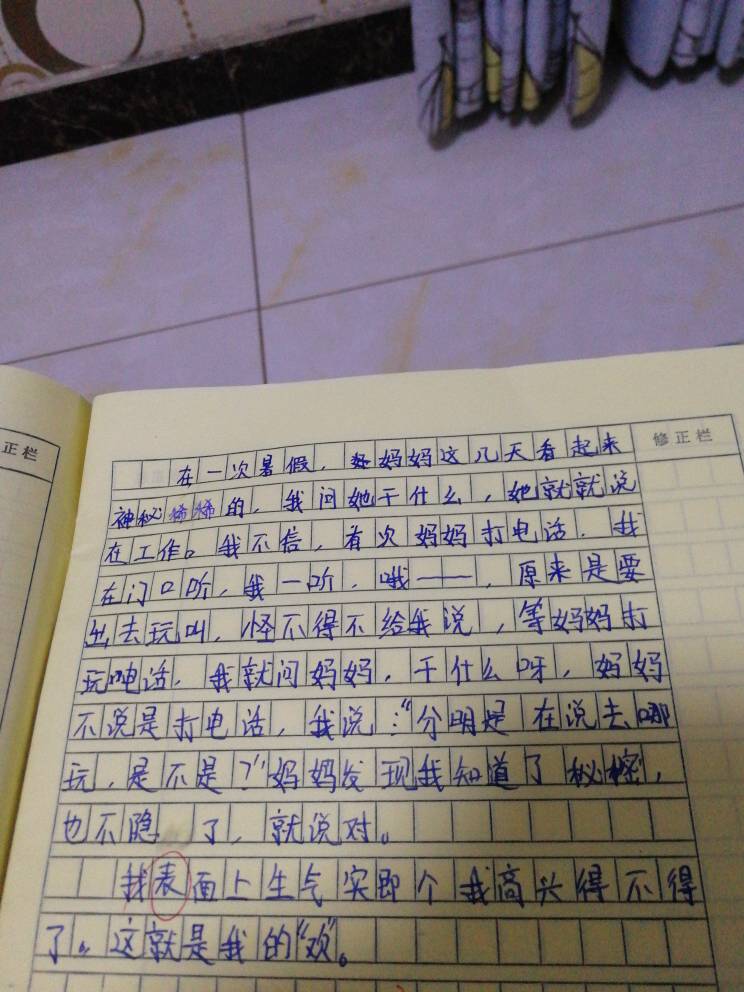 正栏
修正栏
在一次暑假，妈妈这几天看起来
神秘稀稀的，我问她干什么，她就就说
在工作。我不信，有次妈妈打电话，我
在门口听，我一听，哦——，原来是要
出去玩叫，怪不得不给我说，等妈妈打
玩电话，我就问妈妈，干什么呀，妈妈
不说是打电话，我说：“分明是在说去哪
玩，是不是？”妈妈发现我知道了秘密，
也不隐了，就说对。
我表面上生气实即个我高兴得不得
了。这就是我的“欢”。